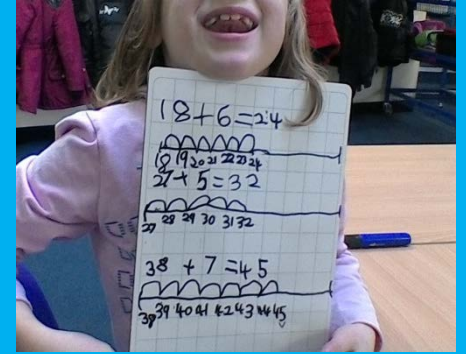 18+6=24
18 19 20 21 22 23 24
27+ 5=32
27 28 29 30 31 32
38 + 7 =45
38 39 40 41 42 43 44 45